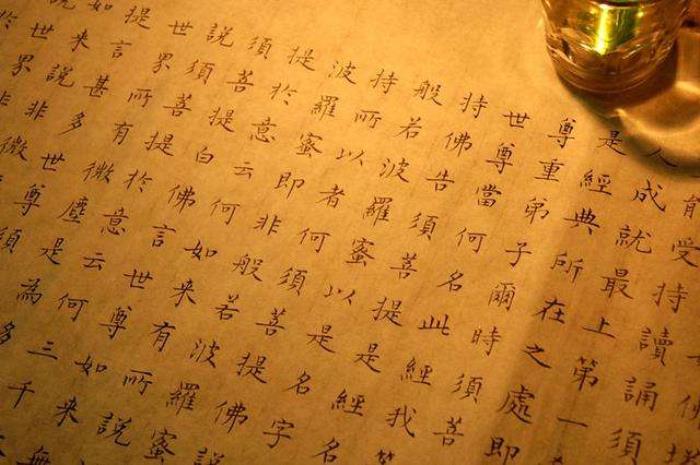 能受持讀誦須
人成就最上第一
是經典所在之處即
尊重弟子爾時須菩
世尊當何名此經我等
持佛告須菩提是經名
般若波羅蜜以是名字
持所以者何須菩提佛說
波羅蜜即非般若波羅蜜
提於意云何如來有所說
須菩提白佛言世尊如來無
說須菩提於意云何三千
世界所有微塵是為多
提言甚多世尊須
如來說非微
世界非